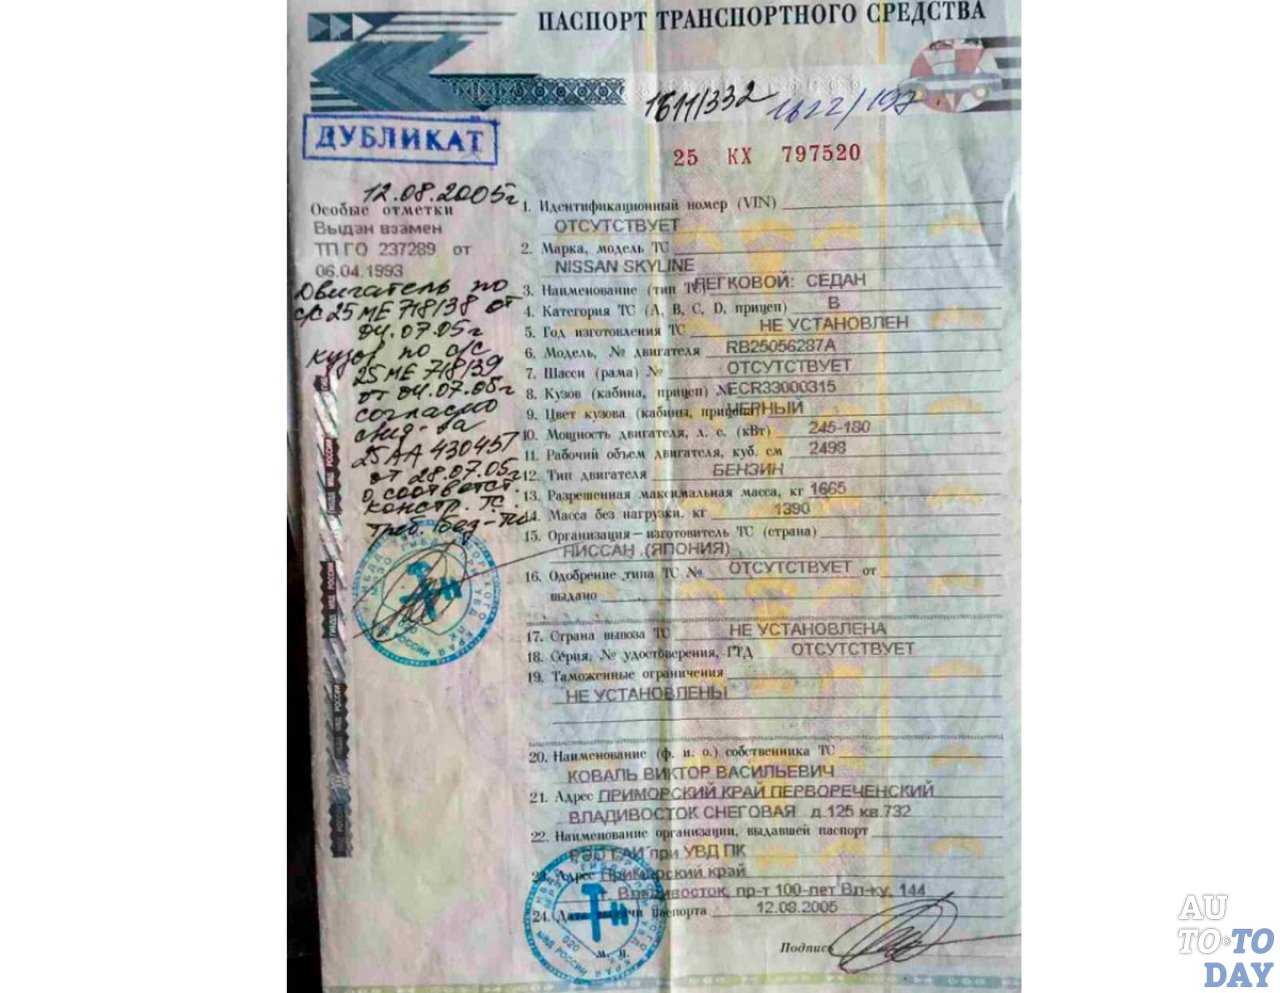 ПАСПОРТ ТРАНСПОРТНОГО СРЕДСТВА
1611/332 1622/197
ДУБЛИКАТ
25 КХ 797520
12.08.2005г
Особые отметки
Выдан взамен
ТП ГО 237289 от
06.04.1993
Двигатель по
с/с 25 МЕ 718138 от
04.07.05г
кузов по с/с
25 МЕ 718139
от 04.07.05г
согласно
свид-ва
25 АА 430457
от 28.07.05г
о соответст.
констр. ТС.
треб. без-ти
1. Идентификационный номер (VIN)
ОТСУТСТВУЕТ
2. Марка, модель ТС
NISSAN SKYLINE
3. Наименование (тип ТС) ЛЕГКОВОЙ: СЕДАН
4. Категория ТС (A, B, C, D, прицеп) B
5. Год изготовления ТС НЕ УСТАНОВЛЕН
6. Модель, № двигателя RB25056287A
7. Шасси (рама) № ОТСУТСТВУЕТ
8. Кузов (кабина, прицеп) № ECR33000315
9. Цвет кузова (кабины, прицепа) ЧЕРНЫЙ
10. Мощность двигателя, л. с. (кВт) 245-180
11. Рабочий объем двигателя, куб. см 2498
12. Тип двигателя БЕНЗИН
13. Разрешенная максимальная масса, кг 1665
14. Масса без нагрузки, кг 1390
15. Организация—изготовитель ТС (страна)
НИССАН (ЯПОНИЯ)
16. Одобрение типа ТС № ОТСУТСТВУЕТ от
выдано
17. Страна вывоза ТС НЕ УСТАНОВЛЕНА
18. Серия, № удостоверения, ГТД ОТСУТСТВУЕТ
19. Таможенные ограничения
НЕ УСТАНОВЛЕНЫ
20. Наименование (ф. и. о.) собственника ТС
КОВАЛЬ ВИКТОР ВАСИЛЬЕВИЧ
21. Адрес ПРИМОРСКИЙ КРАЙ ПЕРВОРЕЧЕНСКИЙ
ВЛАДИВОСТОК СНЕГОВАЯ д.125 кв.732
22. Наименование организации, выдавшей паспорт
РЭО ГАИ при УВД ПК
23. Адрес Приморский край
г. Владивосток, пр-т 100-лет Вл-ку, 144
24. Дата выдачи паспорта 12.08.2005
М. П.
Подпись
AU
TO TO
DAY